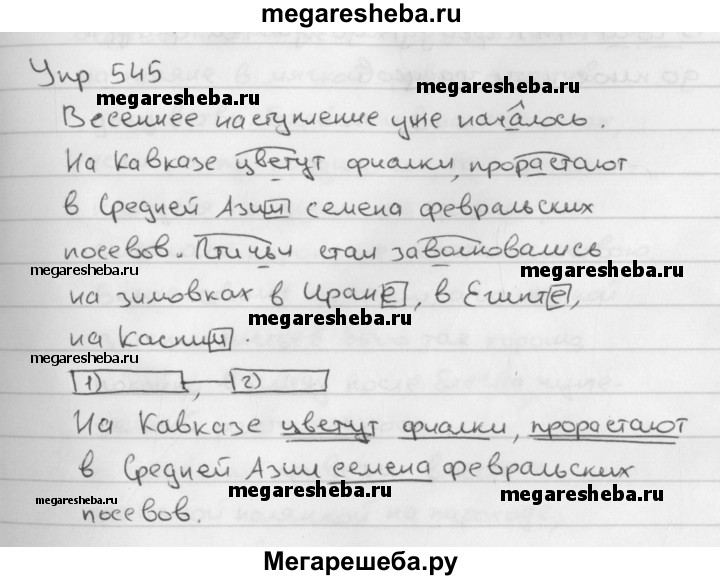 megaresheba.ru
Упр 545
megaresheba.ru
megaresheba.ru
Весеннее наступление уже началось.
На Кавказе цветут фиалки, прорастают
в Средней Азии семена февральских
посевов. Птичьи стаи заволновались
megaresheba.ru
megaresheba.ru
на зимовках в Иране, в Египте,
megaresheba.ru
на Каспии.
megaresheba.ru
1) , 2)
На Кавказе цветут фиалки, прорастают
в Средней Азии семена февральских
megaresheba.ru
megaresheba.ru
megaresheba.ru
посевов.
Мегарешеба.ру